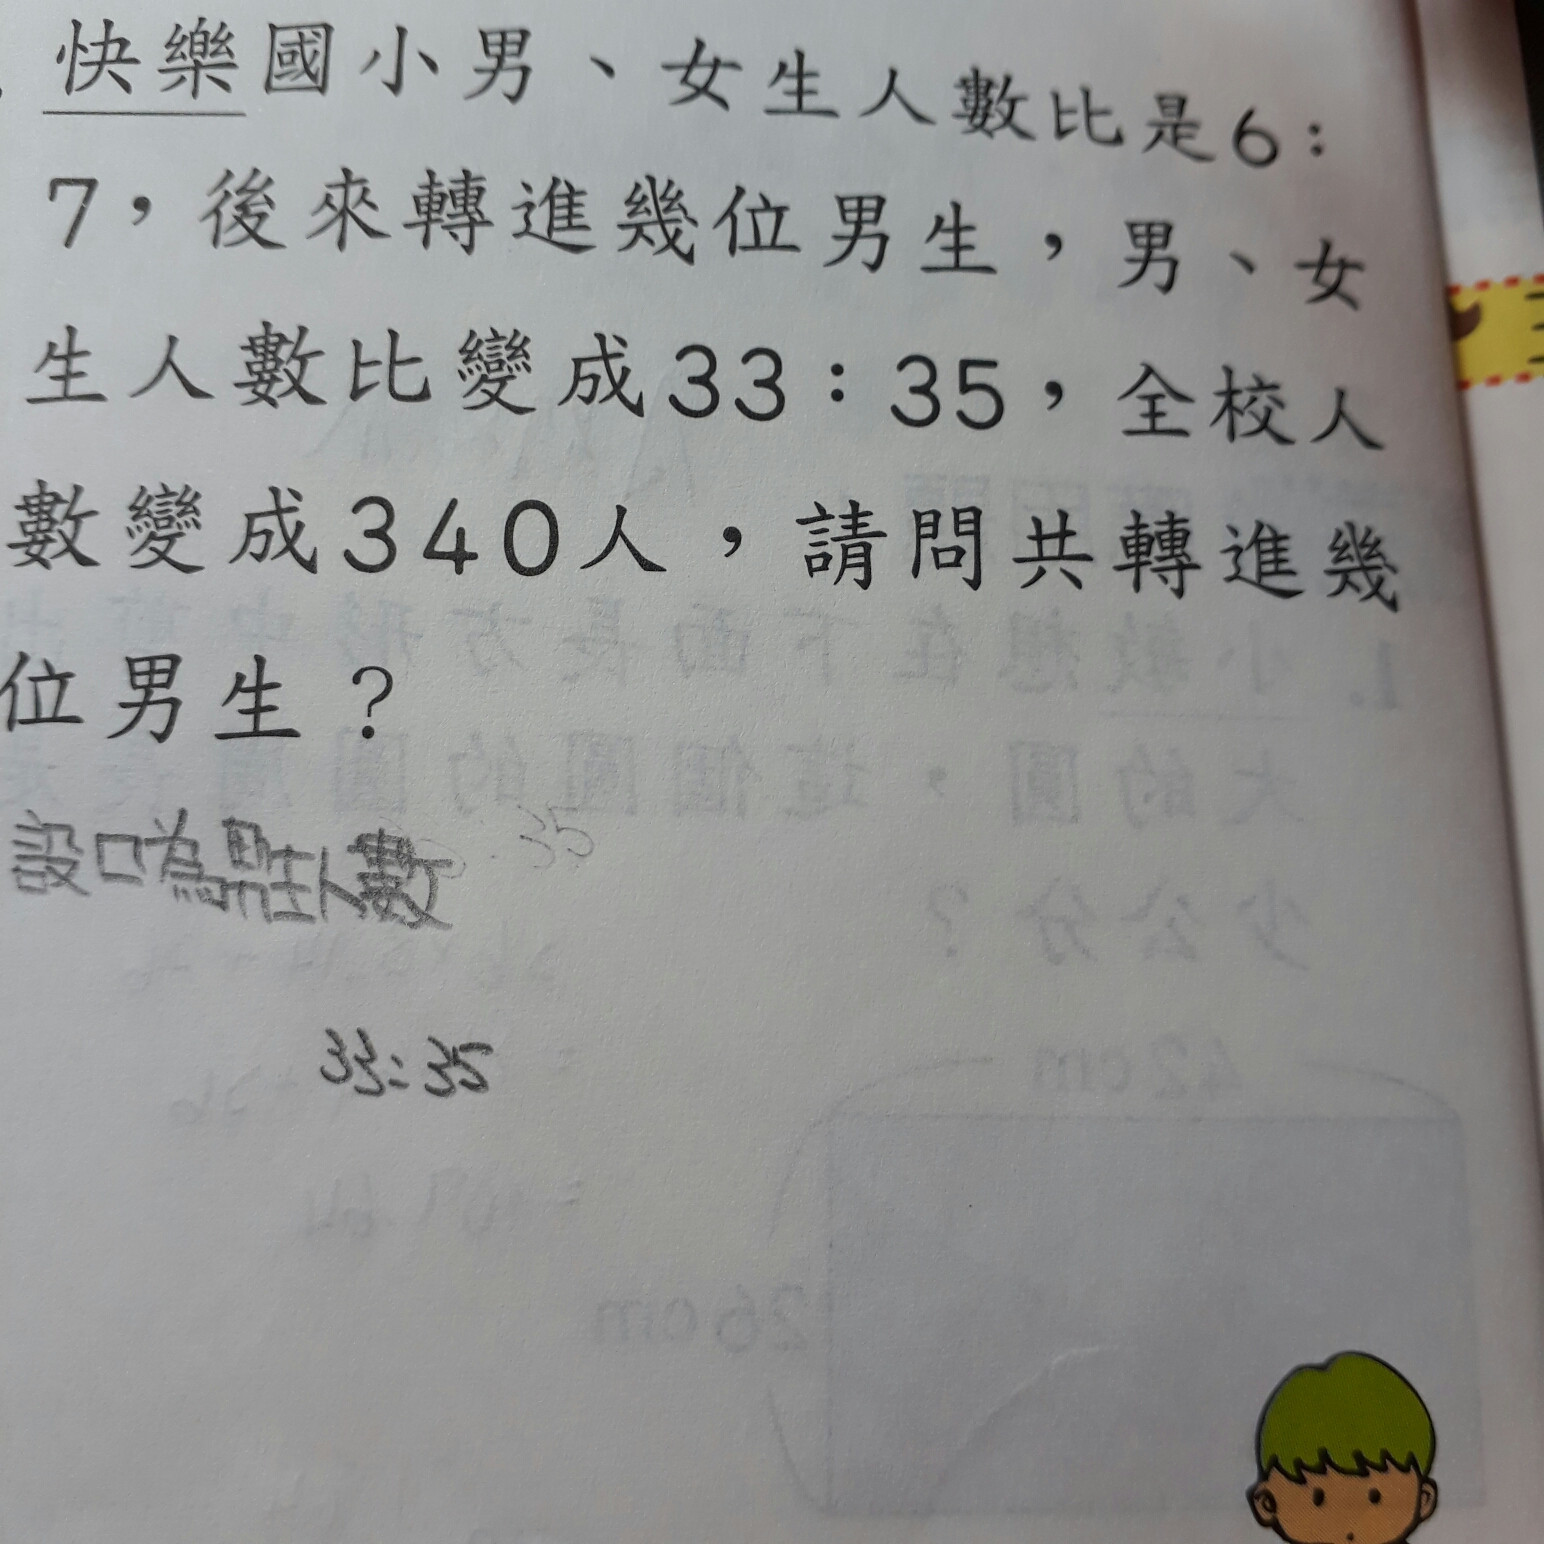 快樂國小男、女生人數比是6：
7，後來轉進幾位男生，男、女
生人數比變成33：35，全校人
數變成340人，請問共轉進幾
位男生？
設口為男生人數
33:35